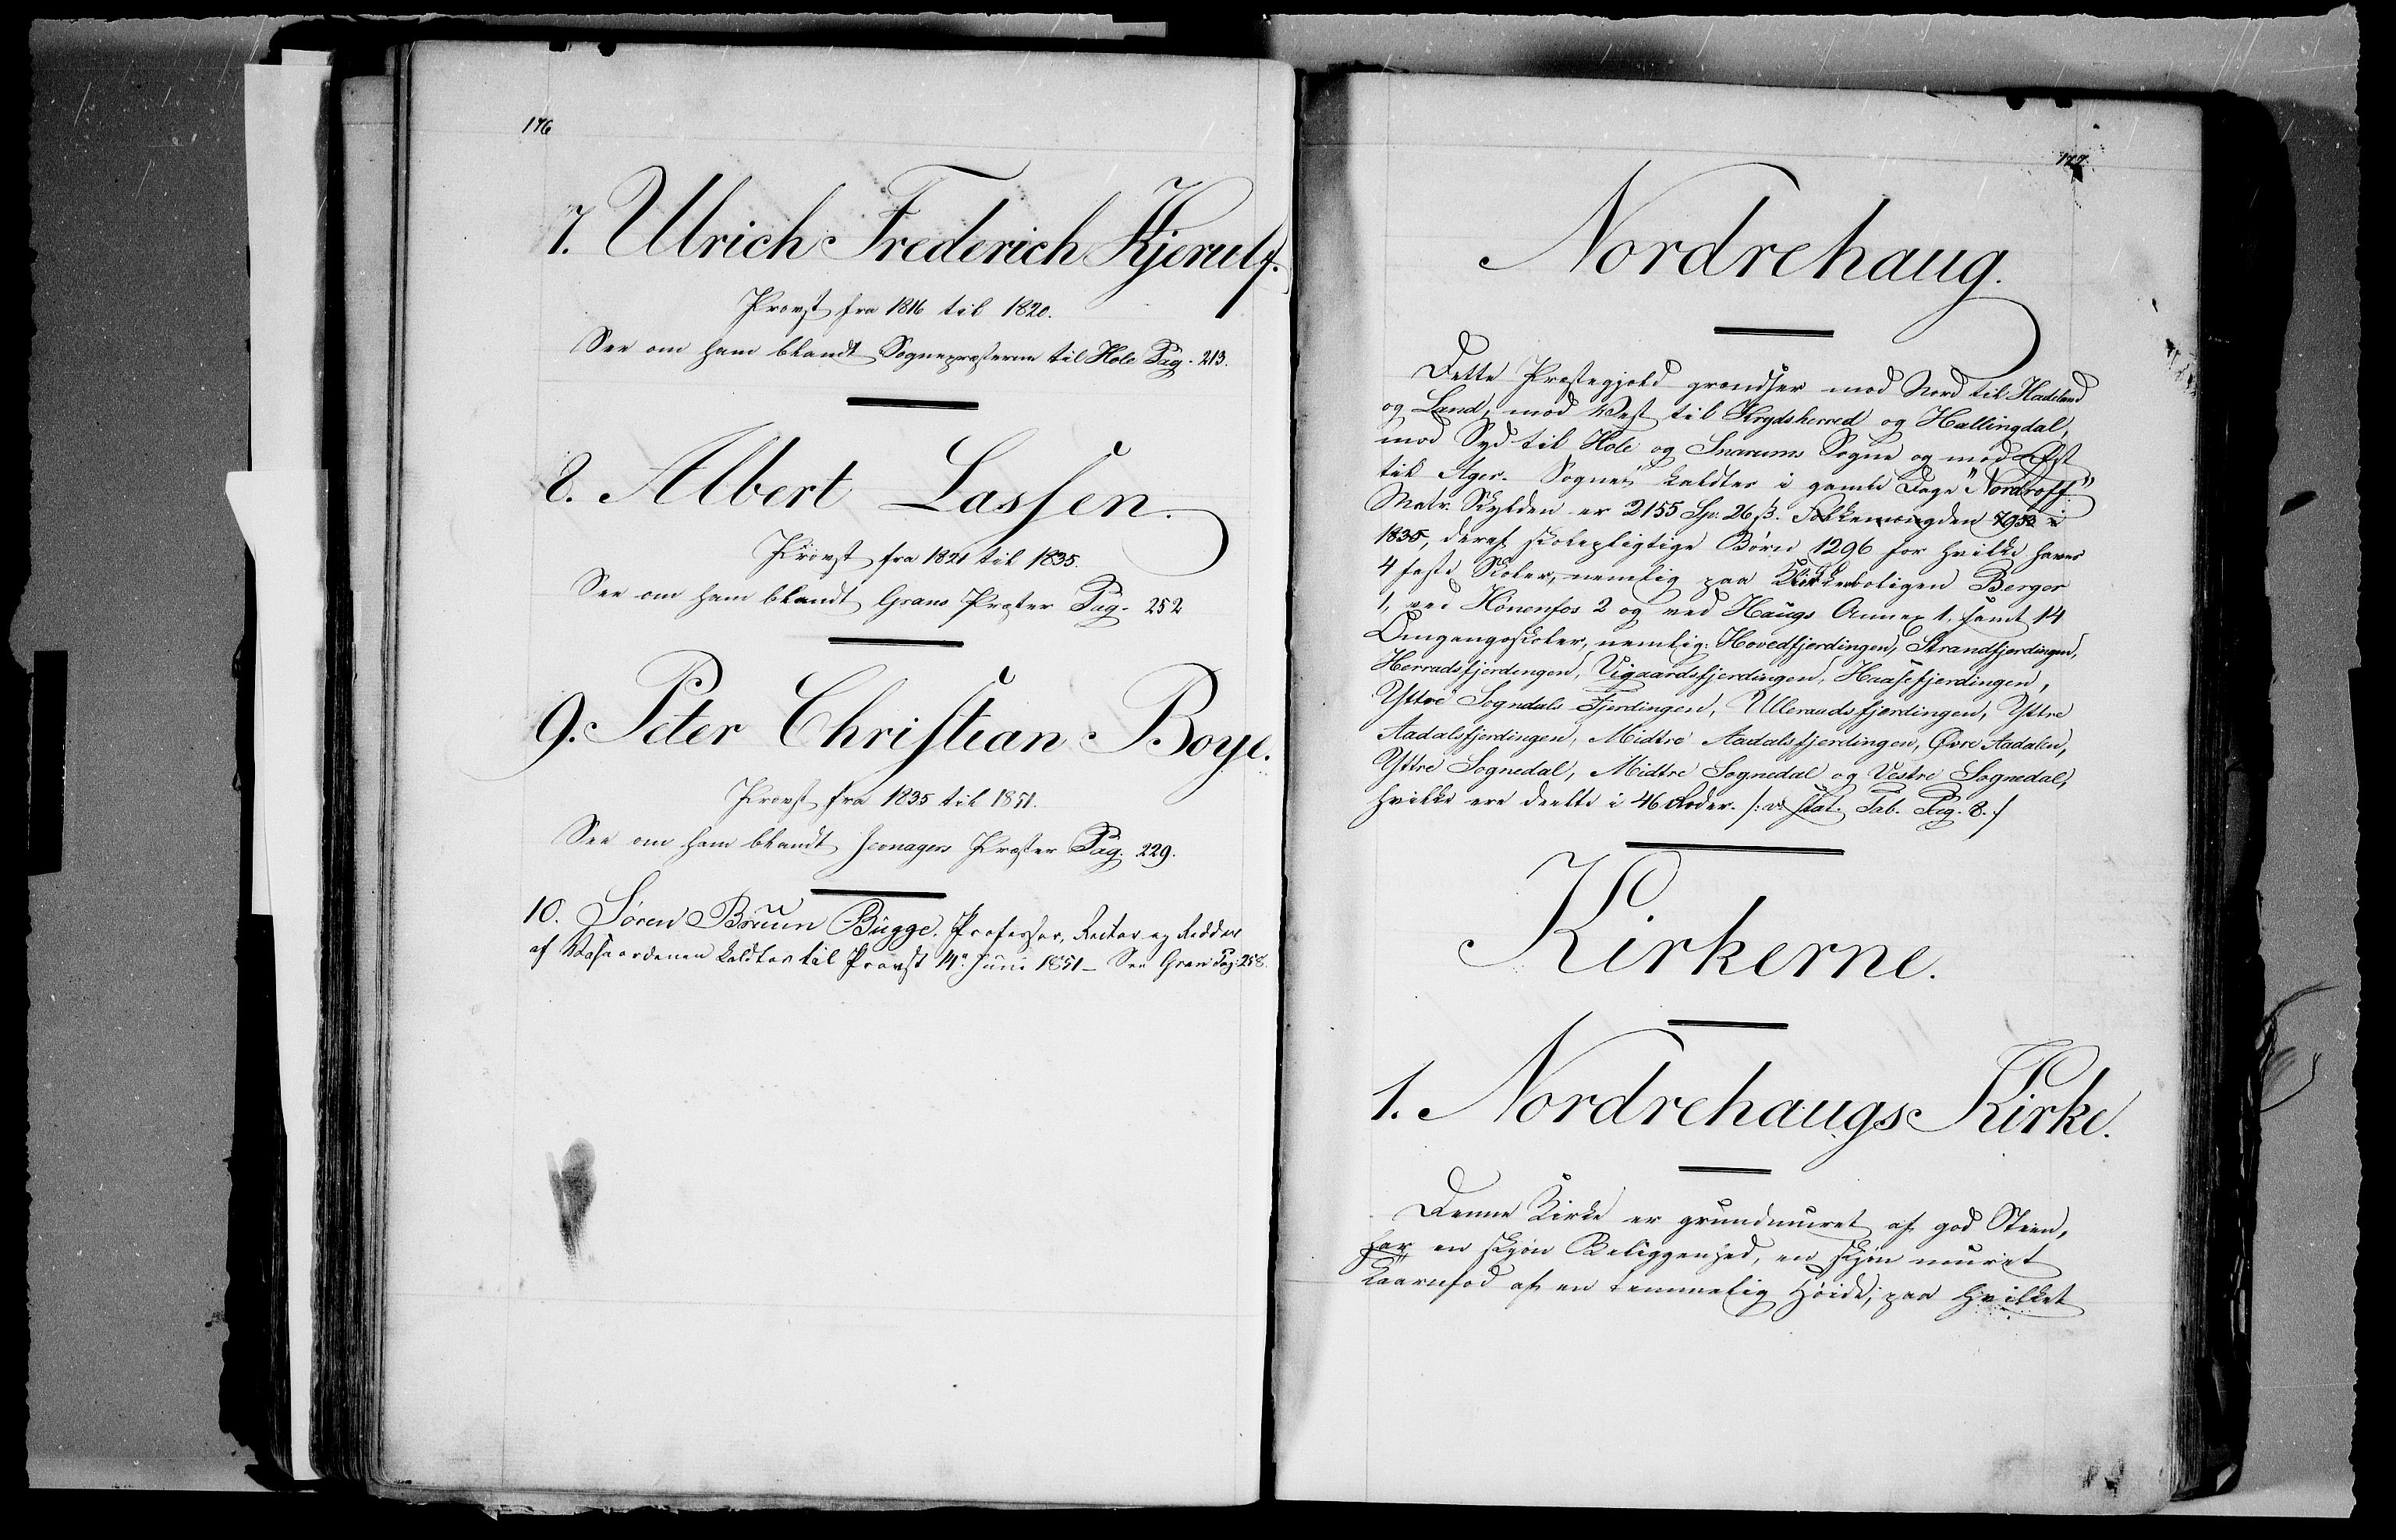 176
7. Ulrich Frederich Kjerulf.
Provst fra 1816 til 1820.
See om ham blandt Sognepræsterne til Hole Pag. 213.
8. Albert Lassen.
Provst fra 1821 til 1835.
See om ham blandt Grans Præster Pag. 252
9. Peter Christian Boye.
Provst fra 1835 til 1851.
See om ham blandt Jevnagers Præster Pag. 229.
10. Søren Bruun Bugge. Professor, Rector og Ridder
af Vasaordenen kaldtes til Provst 14de Juni 1851 - See Gran Pag: 258.
177.
Nordrehaug.
Dette Præstegjeld grændser mod Nord til Hadeland
og Land, mod Vest til Krydsherred og Hallingdal,
mod Syd til Hole og Snarums Sogne og mod Øst
til Ager. Sognet kaldtes i gamle Dage "Nordroff."
Matr. Skylden er 2155 Sp. 26 ß. Folkemængden 7953 i
1835, deraf skolepligtige Børn 1296 for hvilke haves
4 faste Skoler, nemlig paa Enkeboligen Berger
1, ved Hønenfos 2 og ved Haugs Annex 1, samt 14
Omgangsskoler, nemlig: Hovedfjerdingen, Strandfjerdingen,
Herradsfjerdingen, Vigaardsfjerdingen, Haasefjerdingen,
Yttre Sogndals Fjerdingen, Ulleraadsfjerdingen, Yttre
Aadalsfjerdingen, Midtre Aadalsfjerdingen, Øvre Aadalen,
Yttre Sognedal, Midtre Sognedal og Vestre Sognedal,
hvilke ere deelte i 46 Roder. /: v. Stat. Tab. Pag. 8. /
Kirkerne.
1. Nordrehaugs Kirke.
Denne Kirke er grundmuret af god Steen,
har en skjøn Beliggenhed, en skjøn muret
Taarnfod af en temmelig Høide, paa hvilket